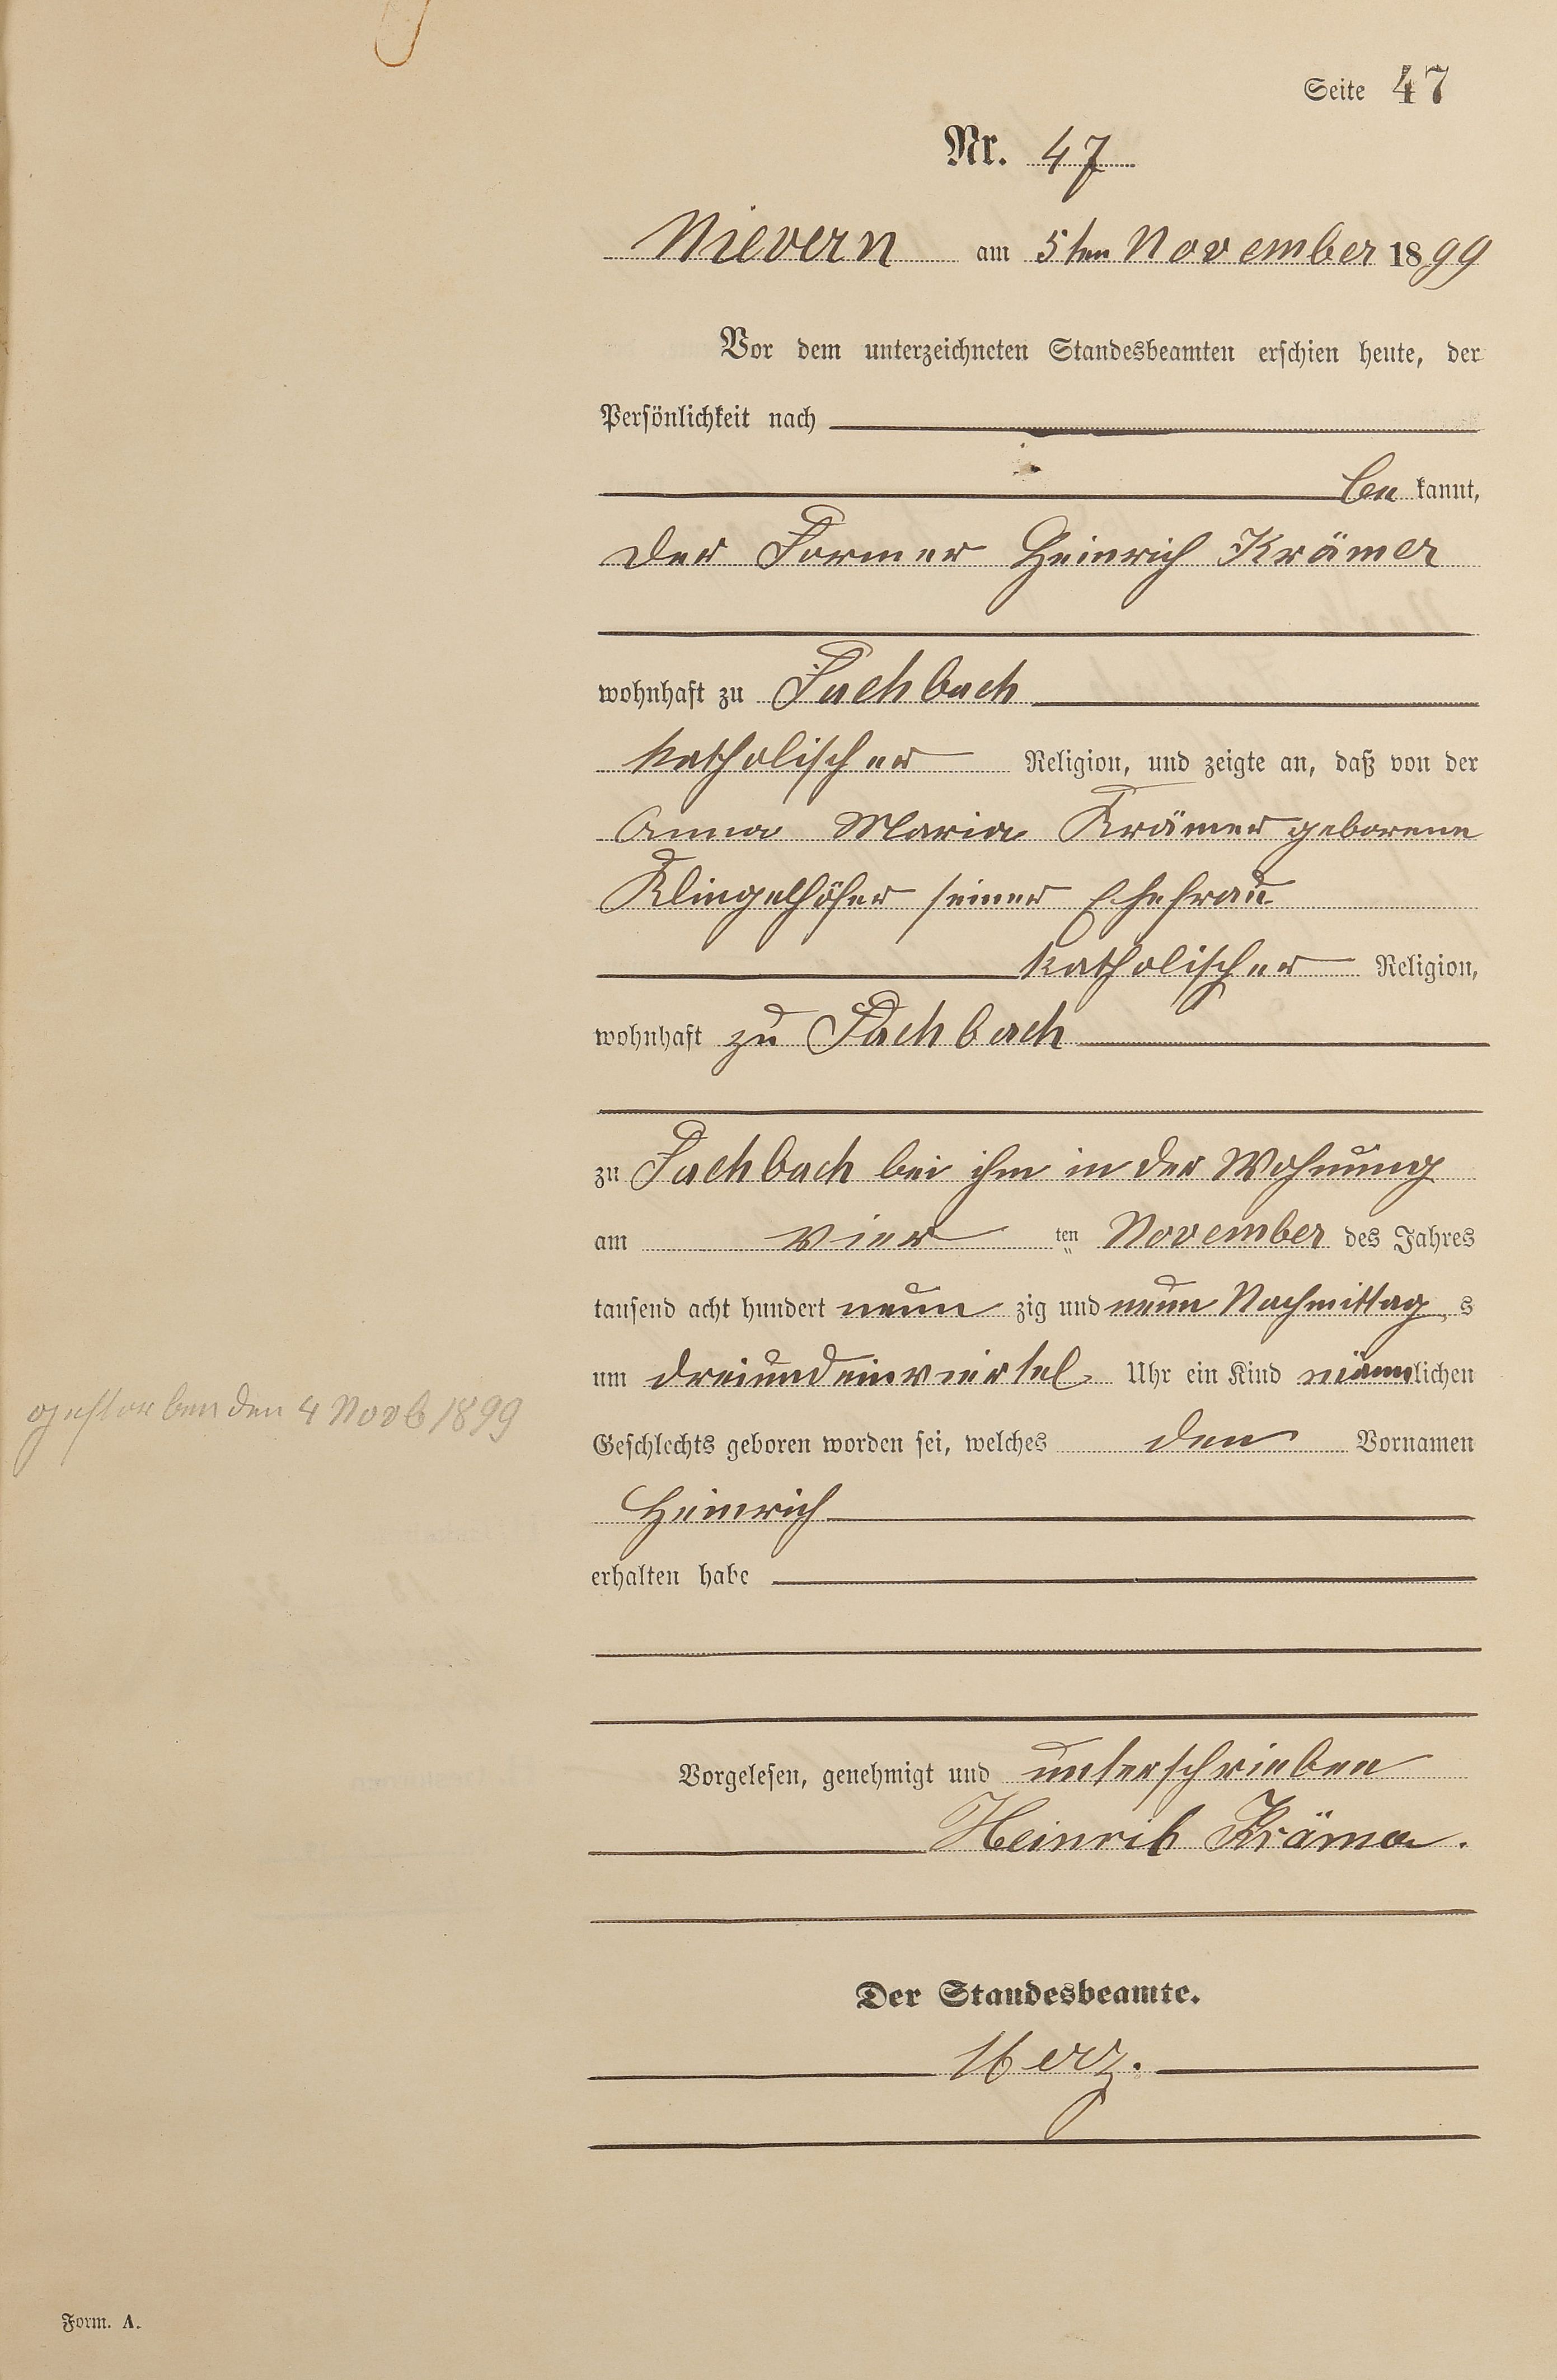 Seite 47
Nr. 47
Nievern am 5ten November 1899
Vor dem unterzeichneten Standesbeamten erschien heute, der
Persönlichkeit nach
be kannt,
der Former Heinrich Krämer
wohnhaft zu Fachbach
katholischer Religion, und zeigte an, daß von der
Anna Maria Krämer geborene
Klingelhöfer seiner Ehefrau
katholischer Religion,
wohnhaft zu Fachbach
zu Fachbach bei ihm in der Wohnung
am vier ten November des Jahres
tausend acht hundert neun zig und neun Nachmittag s
um dreiundeinviertel Uhr ein Kind männlichen
gestorben den 4 Novb 1899
Geschlechts geboren worden sei, welches den Vornamen
Heinrich
erhalten habe
Vorgelesen, genehmigt und unterschrieben
Heinrich Krämer.
Der Standesbeamte.
Herz.
Form. A.